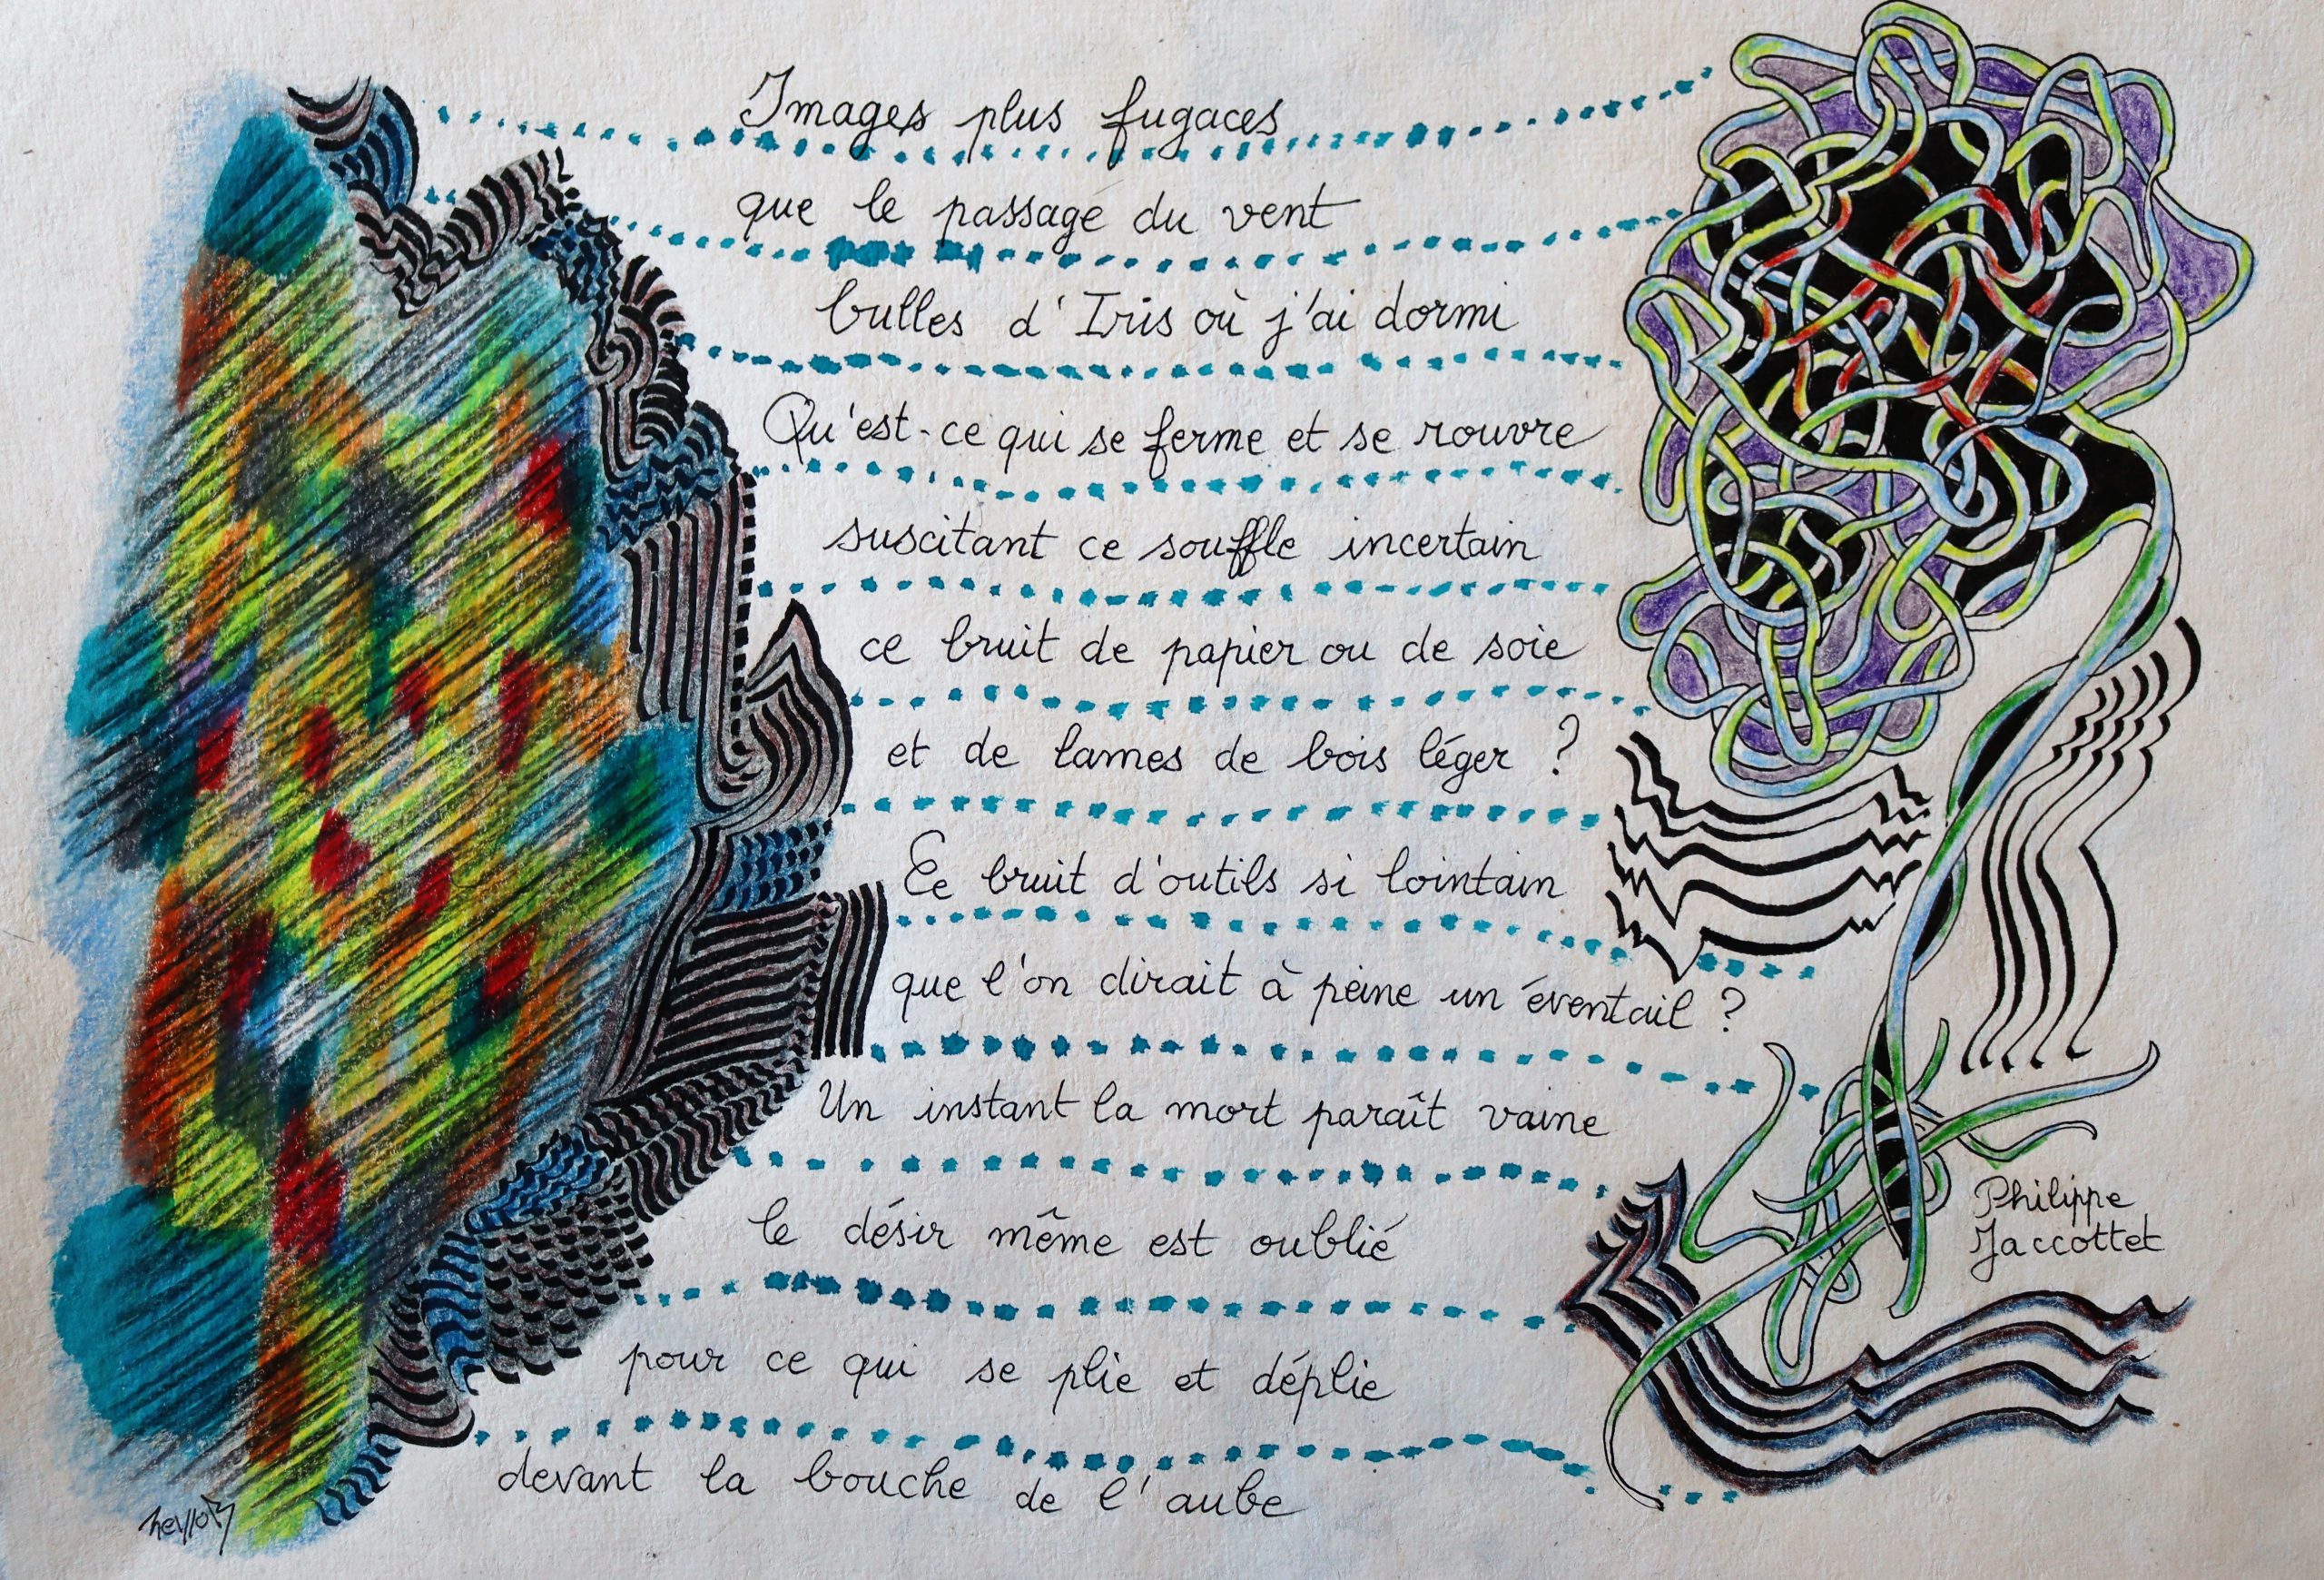 Images plus fugaces
que le passage du vent
bulles d'Iris où j'ai dormi
Qu'est-ce qui se ferme et se rouvre
suscitant ce souffle incertain
ce bruit de papier ou de soie
et de lames de bois léger ?
Ce bruit d'outils si lointain
que l'on dirait à peine un éventail ?
Un instant la mort paraît vaine
le désir même est oublié
pour ce qui se plie et déplie
devant la bouche de l'aube
Philippe
Jaccottet